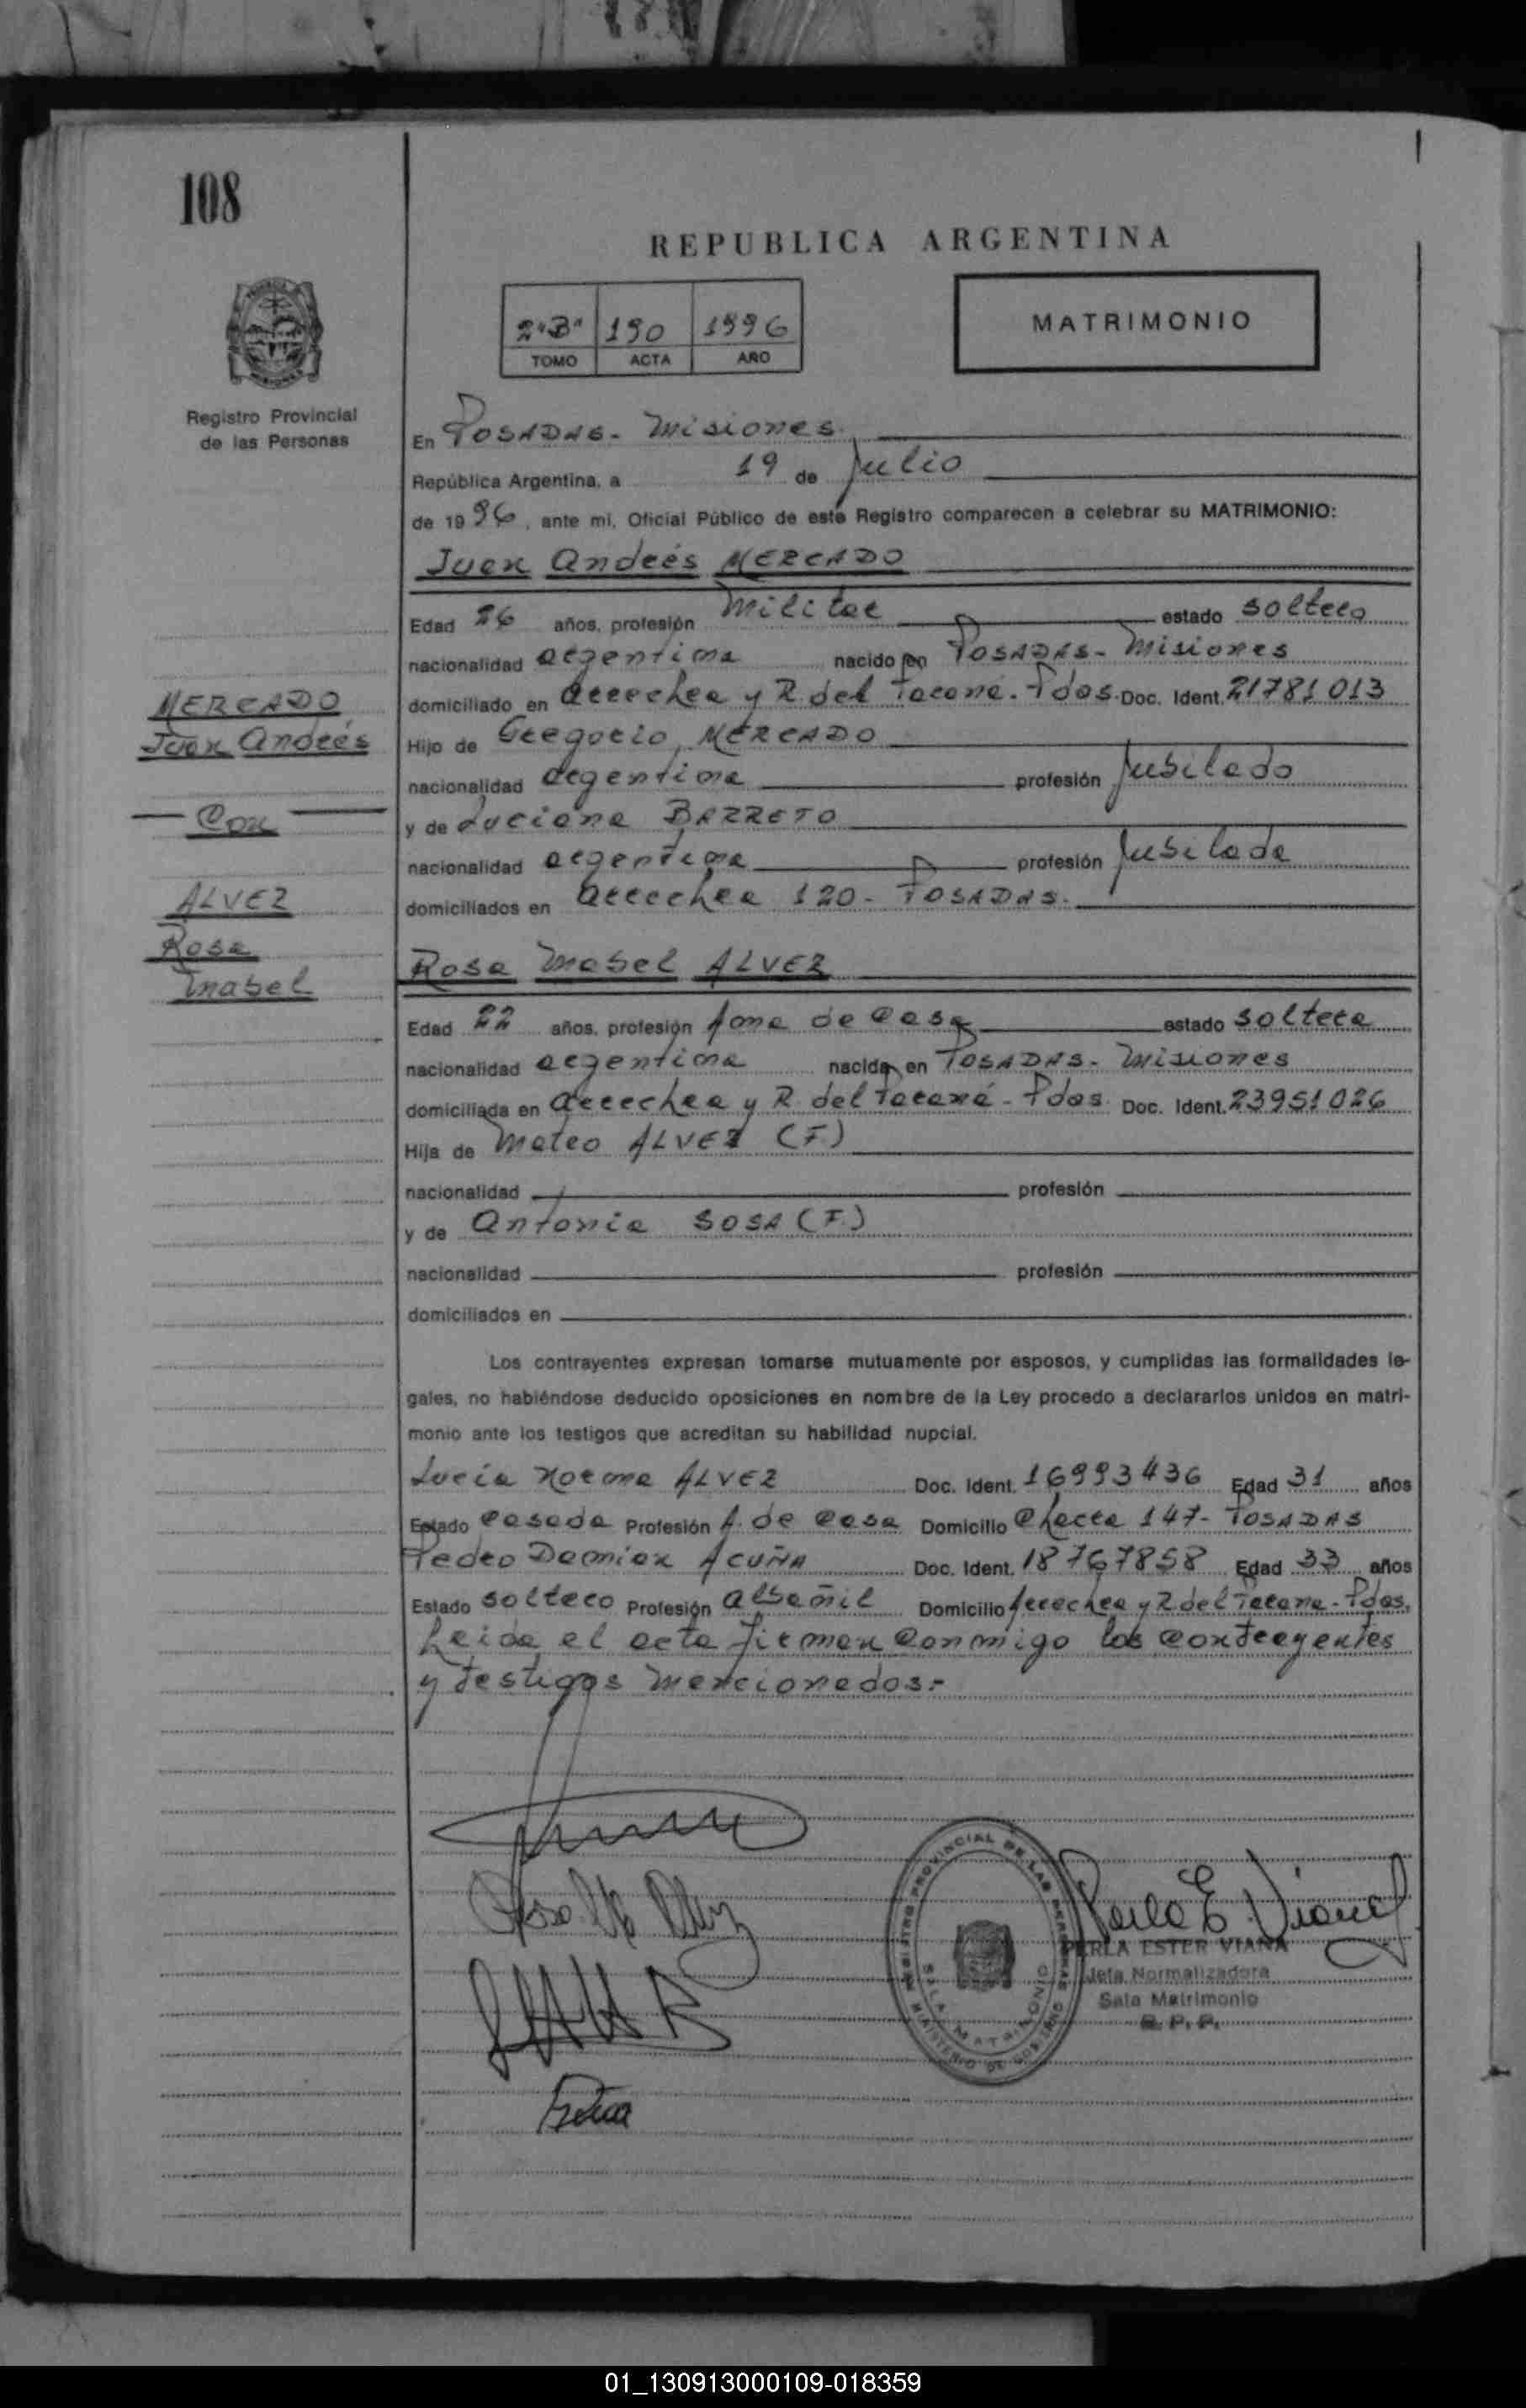 108
REPUBLICA ARGENTINA
2"B" 190 1996
TOMO ACTA AÑO
MATRIMONIO
Registro Provincial
de las Personas
En POSADAS - Misiones.
República Argentina, a 19 de Julio
de 1996, ante mi, Oficial Público de este Registro comparecen a celebrar su MATRIMONIO:
Juan Andrés MERCADO
Edad 26 años, profesión Militar estado soltero
nacionalidad argentina nacido en POSADAS - Misiones
domiciliado en Arrechea y R. del Paraná - Pdas. Doc. Ident. 21781013
Hijo de Gregorio MERCADO
nacionalidad argentina profesión Jubilado
y de Luciana BARRETO
nacionalidad argentina profesión Jubilada
domiciliados en Arrechea 120 - POSADAS.
MERCADO
Juan Andrés
Con
ALVEZ
Rosa
Mabel
Rosa Mabel ALVEZ
Edad 22 años, profesión Ama de Casa estado soltera
nacionalidad argentina nacida en POSADAS - Misiones
domiciliada en Arrechea y R. del Paraná - Pdas. Doc. Ident. 23951026
Hija de Mateo ALVEZ (F.)
nacionalidad profesión
y de Antonia SOSA (F.)
nacionalidad profesión
domiciliados en
Los contrayentes expresan tomarse mutuamente por esposos, y cumplidas las formalidades le-
gales, no habiéndose deducido oposiciones en nombre de la Ley procedo a declararlos unidos en matri-
monio ante los testigos que acreditan su habilidad nupcial.
Lucía Norma ALVEZ Doc. Ident. 16993436 Edad 31 años
Estado Casada Profesión A. de Casa Domicilio Chacra 147 - POSADAS
Pedro Damian ACUÑA Doc. Ident. 18767858 Edad 33 años
Estado soltero Profesión albañil Domicilio Arrechea y R del Parana - Pdas.
Leida el acta firman conmigo los contrayentes
y testigos mencionados.-
REGISTRO PROVINCIAL DE LAS PERSONAS
SALA MATRIMONIO
MINISTERIO DE GOBIERNO
Perla E. Viana
PERLA ESTER VIANA
Jefa Normalizadora
Sala Matrimonio
R. P. P.
01_130913000109-018359